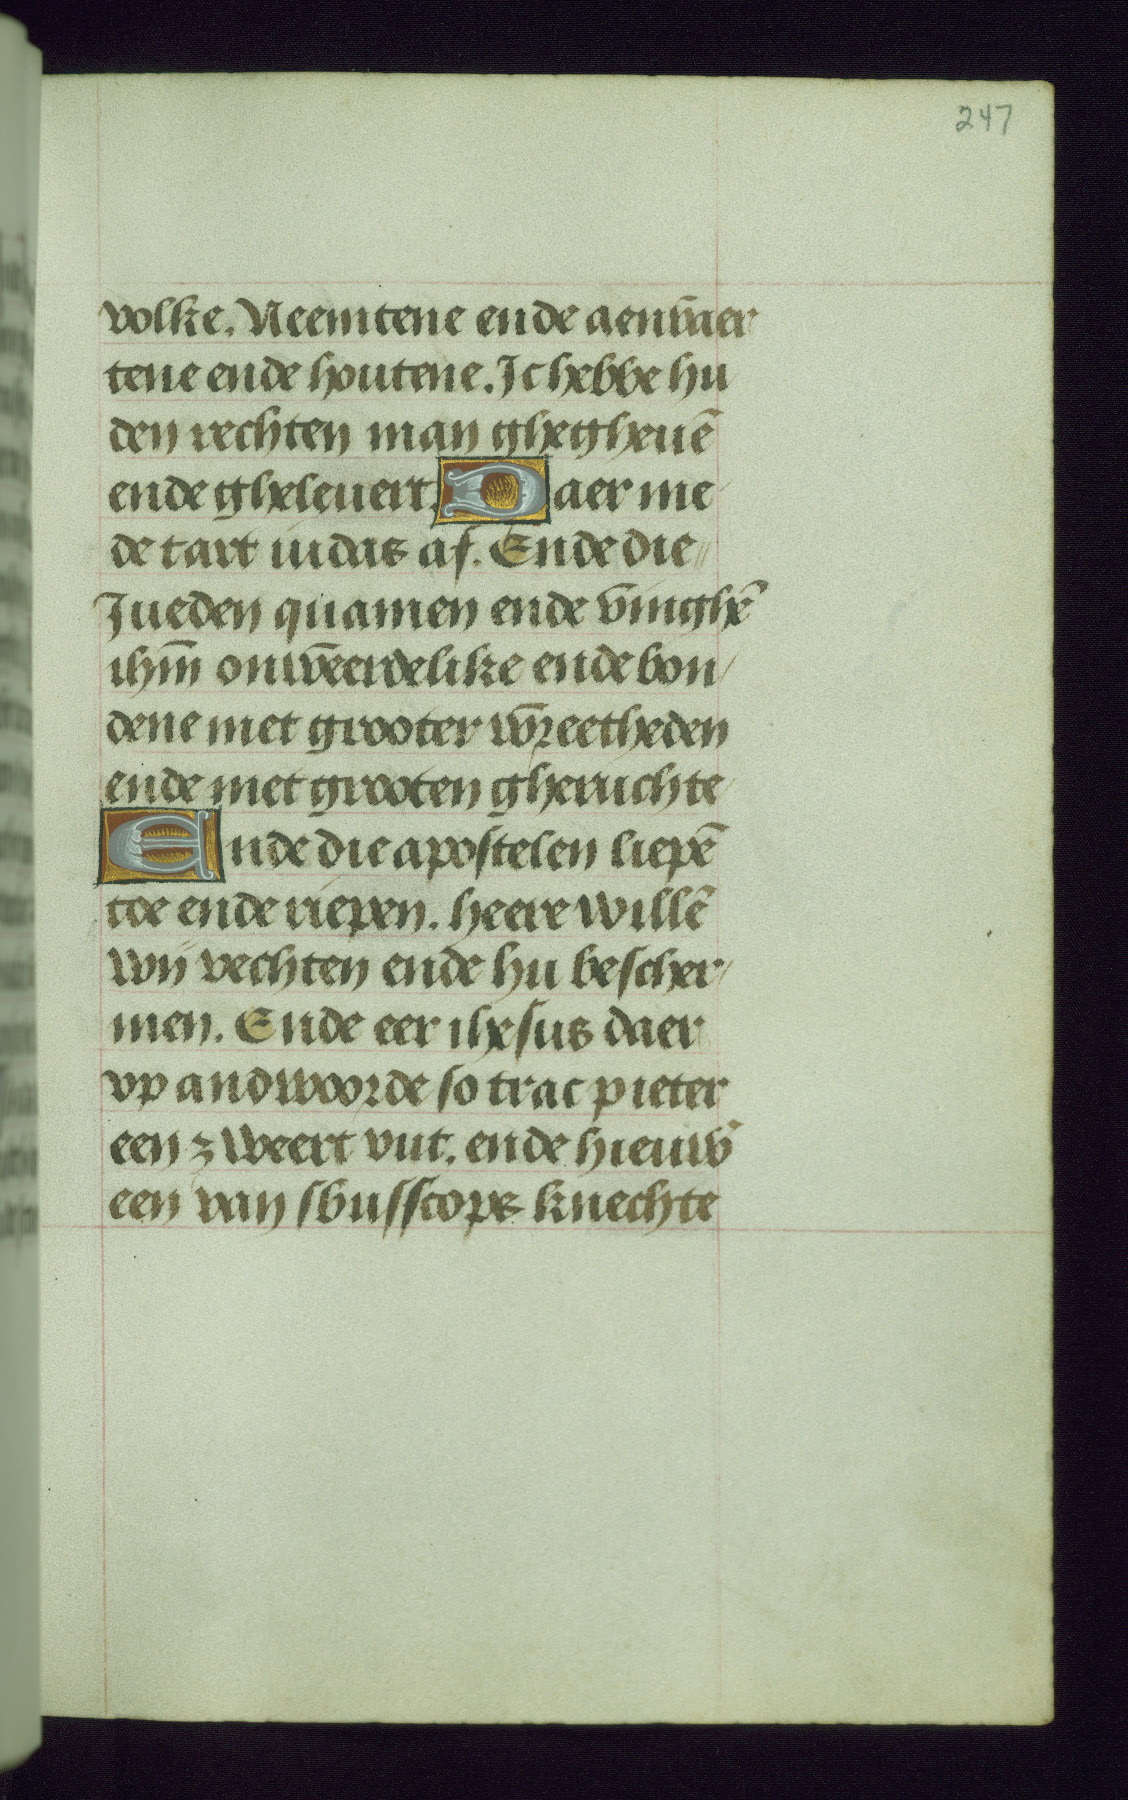 247
volke. Neemtene ende aenv̄aer
tene ende houtene. Ic hebbe hu
den rechten man ghegheuē
ende gheleuert. Daer me
de tart iudas af. Ende die
Jueden quamen ende v̄inghē
ihm̄ onwēerdelike ende bon/
dene met grooter wr̄eetheden
ende met grooten gheruchte
Ende die apostelen liepē
toe ende riepen. heere willē
wij vechten ende hu bescher/
men. Ende eer ihesus daer
vp andwoorde so trac pieter
een zweert vut. ende hieuw̄
een van sbusscops knechte